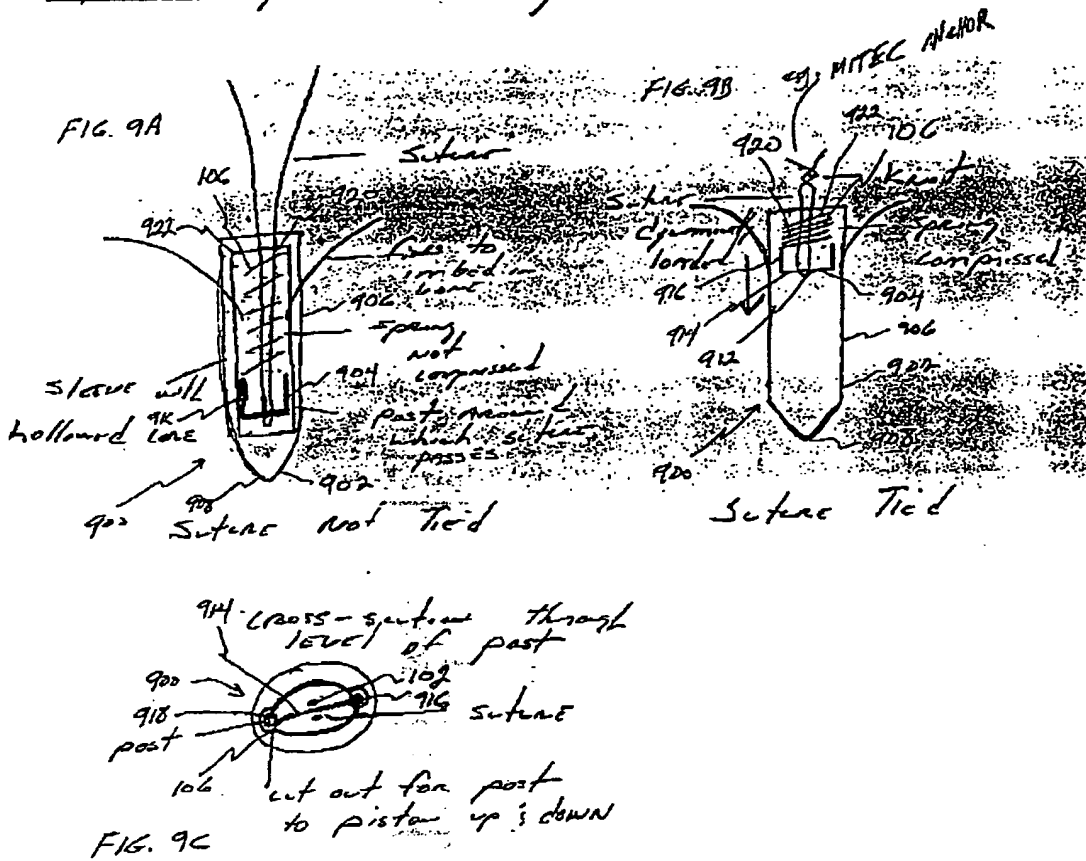 FIG. 9A
106
Suture
920
922
Lugs to
imbed in
bone
906
Spring
not
compressed
Sleeve with
hollowed core
904
post around
which suture
passes
902
908
900
Suture Not Tied
FIG. 9B
eg. MITEC ANCHOR
920
922
106
Knot
Suture
dynamic
loaded
Spring
compressed
916
914
912
904
906
902
908
900
Suture Tied
914
Cross-section through
level of post
900
102
916
918
Suture
post
106
cut out for post
to piston up & down
FIG. 9C